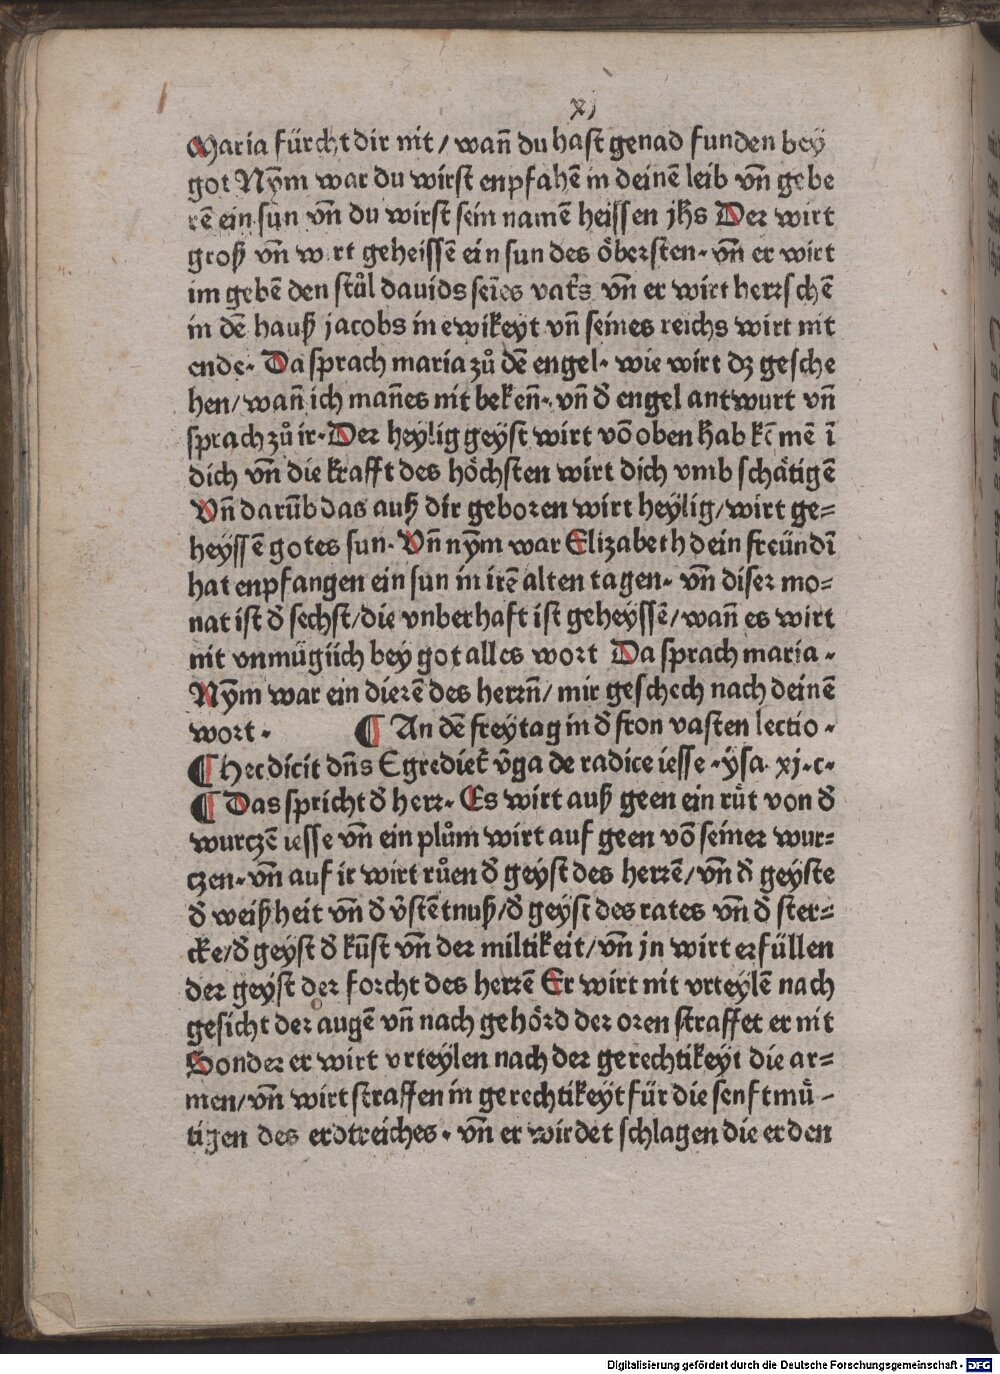 xj
Maria fürcht dir nit / wan̄ du hast genad funden bey
got Nẏm war du wirst enpfahē in deinē leib vn̄ gebe
rē ein sun vn̄ du wirst sein namē heissen jhs Der wirt
groß vn̄ wirt geheissē ein sun des öbersten · vn̄ er wirt
im gebē den stůl dauids seīes vat's vn̄ er wirt herrschē
in dē hauß jacobs in ewikeyt vn̄ seines reichs wirt nit
ende · Da sprach maria zů dē engel · wie wirt dz gesche
hen / wan̄ ich man̄es nit beken̄ · vn̄ d̄ engel antwurt vn̄
sprach zů ir · Der heylig geyst wirt vō oben hab kēmē ī
dich vn̄ die krafft des höchsten wirt dich vmb schätigē
Vn̄ darūb das auß dir geboren wirt heylig / wirt ge=
heyssē gotes sun · Vn̄ nẏm war Elizabeth dein freündī
hat enpfangen ein sun in irē alten tagen · vn̄ diser mo=
nat ist d̄ sechst / die vnberhaft ist geheyssē / wan̄ es wirt
nit vnmügiich bey got alles wort Da sprach maria ·
Nẏm war ein dierē des herrn̄ / mir geschech nach deinē
wort · ¶ An dē freytag in d̄ fron vasten lectio ·
¶ Hec dicit dn̄s Egrediet' v̄ga de radice iesse · ysa · xj · c ·
¶ Das spricht d̄ herr · Es wirt auß geen ein růt von d̄
wurczē iesse vn̄ ein plům wirt auf geen vō seiner wur=
czen · vn̄ auf ir wirt růen d̄ geyst des herrē / vn̄ d̄ geyste
d̄ weißheit vn̄ d̄ v̄stētnuß / d̄ geyst des rates vn̄ d̄ ster=
cke / d̄ geyst d̄ kūst vn̄ der miltikeit / vn̄ jn wirt erfüllen
der geyst der forcht des herrē Er wirt nit vrteylē nach
gesicht der augē vn̄ nach gehörd der oren straffet er nit
Sonder er wirt vrteylen nach der gerechtikeyt die ar=
men / vn̄ wirt straffen in gerechtikeyt für die senftmů -
tigen des erdtreiches · vn̄ er wirdet schlagen die erden
Digitalisierung gefördert durch die Deutsche Forschungsgemeinschaft - DFG